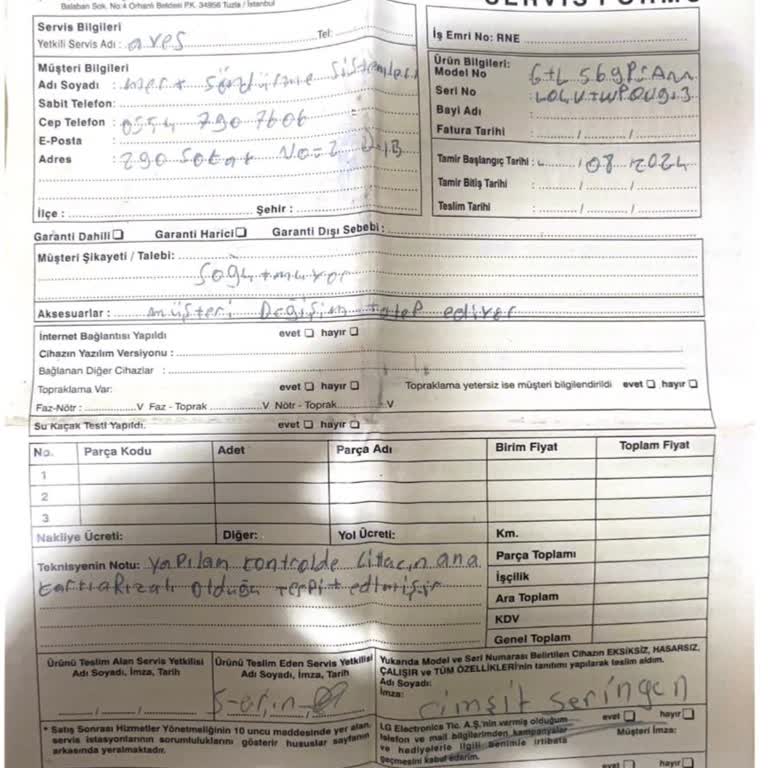 Balaban Sok. No:4 Orhanlı Beldesi P.K. 34956 Tuzla / İstanbul
SERVİS FORMU
Servis Bilgileri
Yetkili Servis Adı : ares Tel:
İş Emri No: RNE
Müşteri Bilgileri
Adı Soyadı : mert söndürme sistemleri
Sabit Telefon:
Cep Telefon : 0554 790 7606
E-Posta :
Adres : 290 Sokak No=2 D
İlçe : Şehir :
Ürün Bilgileri:
Model No
Seri No :
Bayi Adı :
Fatura Tarihi : / /
Tamir Başlangıç Tarihi : / 08 / 2024
Tamir Bitiş Tarihi : / /
Teslim Tarihi : / /
Garanti Dahili ☐ Garanti Harici ☐ Garanti Dışı Sebebi :
Müşteri Şikayeti / Talebi:
Soğutmuyor
Aksesuarlar : müşteri Değişim talep ediyor
İnternet Bağlantısı Yapıldı evet ☐ hayır ☐
Cihazın Yazılım Versiyonu :
Bağlanan Diğer Cihazlar :
Topraklama Var: evet ☐ hayır ☐ Topraklama yetersiz ise müşteri bilgilendirildi evet ☐ hayır ☐
Faz-Nötr : V Faz - Toprak V Nötr - Toprak V
Su Kaçak Testi Yapıldı. evet ☐ hayır ☐
No. Parça Kodu Adet Parça Adı Birim Fiyat Toplam Fiyat
1
2
3
Nakliye Ücreti: Diğer: Yol Ücreti: Km.
Teknisyenin Notu: Yapılan kontrolde cihazın ana
kartı arızalı olduğu tespit edilmiştir
Parça Toplamı
İşçilik
Ara Toplam
KDV
Genel Toplam
Ürünü Teslim Alan Servis Yetkilisi
Adı Soyadı, İmza, Tarih
Ürünü Teslim Eden Servis Yetkilisi
Adı Soyadı, İmza, Tarih
Yukarıda Model ve Seri Numarası Belirtilen Cihazın EKSİKSİZ, HASARSIZ,
ÇALIŞIR ve TÜM ÖZELLİKLERİ'nin tanıtımı yapılarak teslim aldım.
Adı Soyadı:
İmza:
* Satış Sonrası Hizmetler Yönetmeliğinin 10 uncu maddesinde yer alan,
servis istasyonlarının sorumluluklarını gösterir hususlar sayfanın
arkasında yeralmaktadır.
LG Electronics Tic. A.Ş.'nin vermiş olduğum
telefon ve mail bilgilerimden kampanyalar
ve hediyelerle ilgili benimle irtibata
geçmesini kabul ederim.
evet ☐ hayır ☐
Müşteri İmza:
evet ☐ hayır ☐